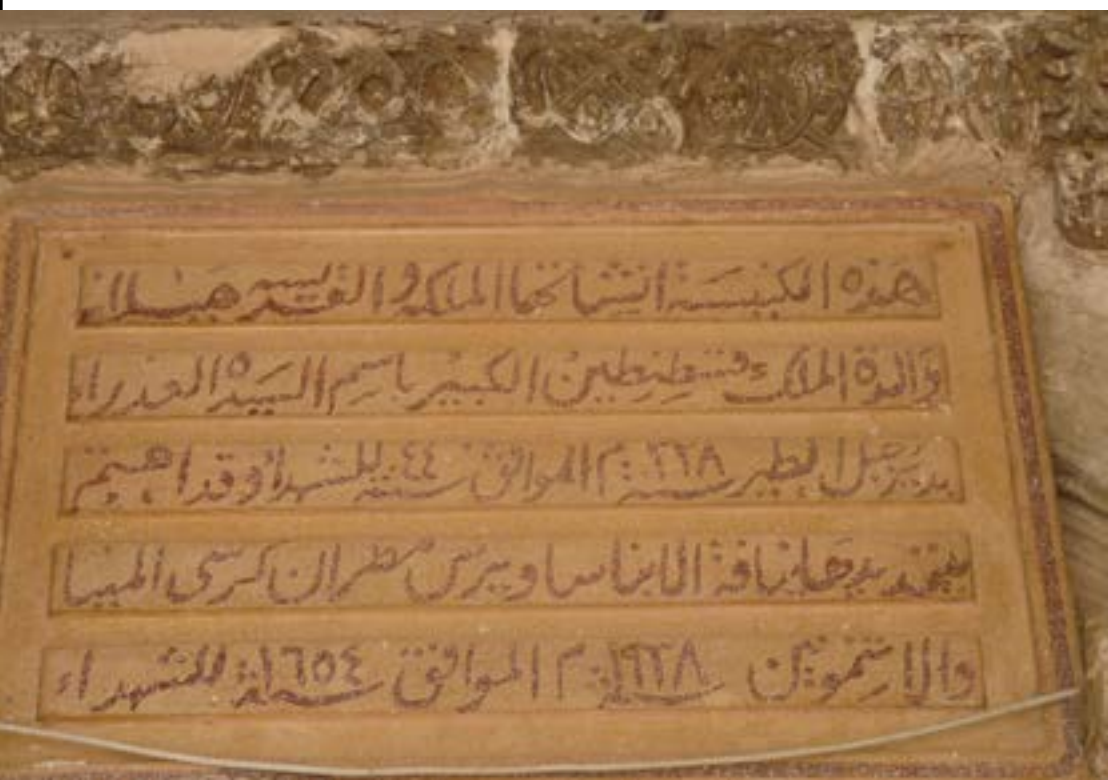 هذه الكنيسة انشأتها الملكه والقديسه هيلانه
والدة الملك قسطنطين الكبير باسم السيدة العذراء
بدير جبل الطير سنة ٣٢٨ م الموافق سنة ٤٤ للشهدا وقد اهتم
بتجديدها نيافة الانبا ساويرس مطران كرسى المنيا
والاشمونين سنة ١٩٣٨ م الموافق سنة ١٦٥٤ للشهداء